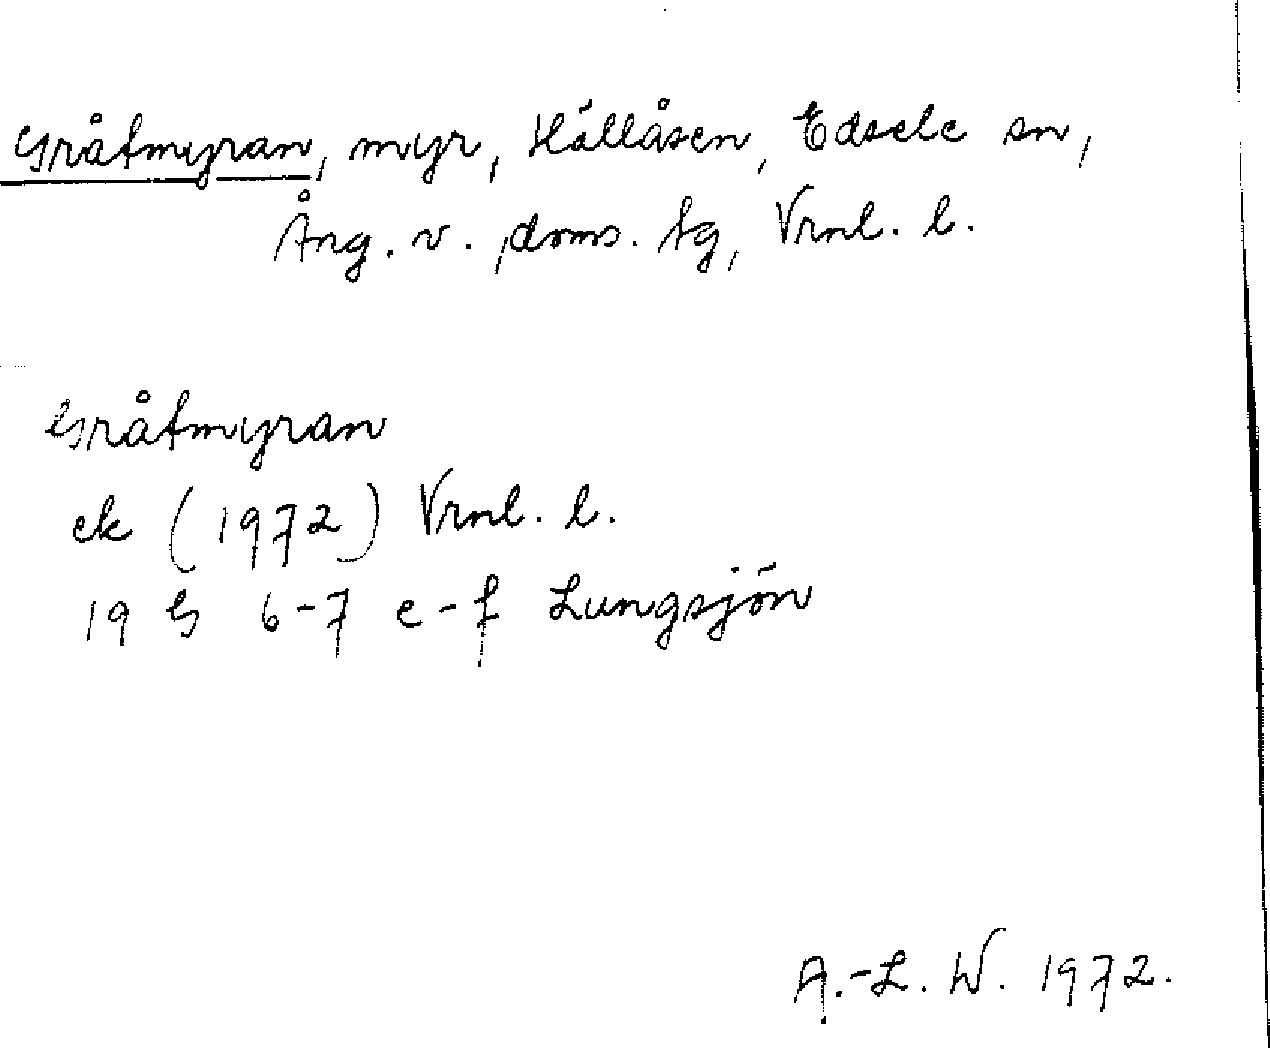 Gråtmyran, myr, Hällåsen, Edsele sn,
Ång. v. doms. tg, Vrnl. l.
Gråtmyran
ek (1972) Vrnl. l.
19 G 6-7 e-f Lungsjön
A.-L. W. 1972.